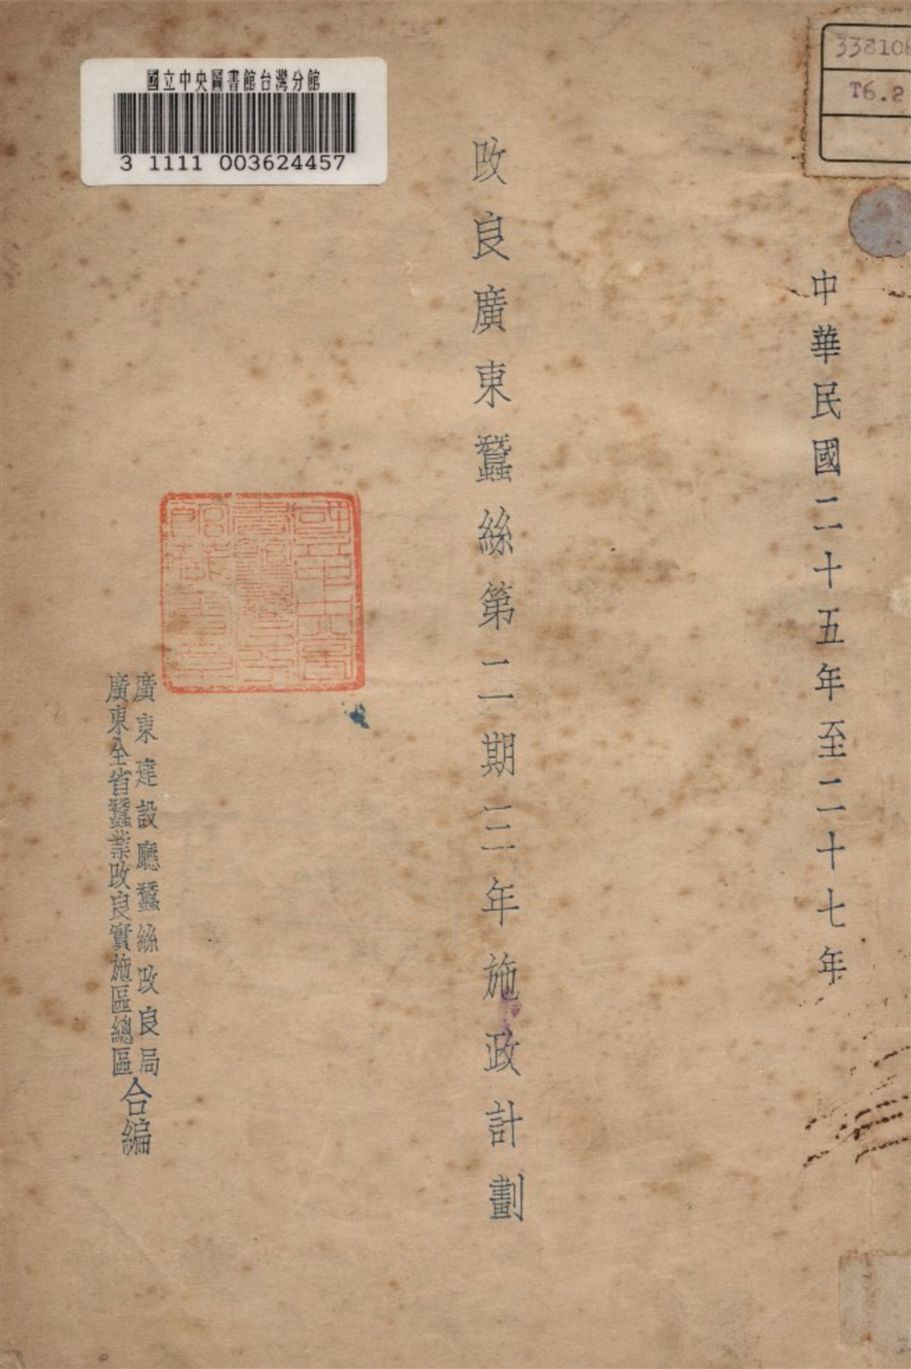 國立中央圖書館台灣分館
3 1111 003624457
338106
T6.2
中華民國二十五年至二十七年
改良廣東蠶絲第二期三年施政計劃
廣東建設廳蠶絲改良局
廣東全省蠶業改良實施區總區
合編